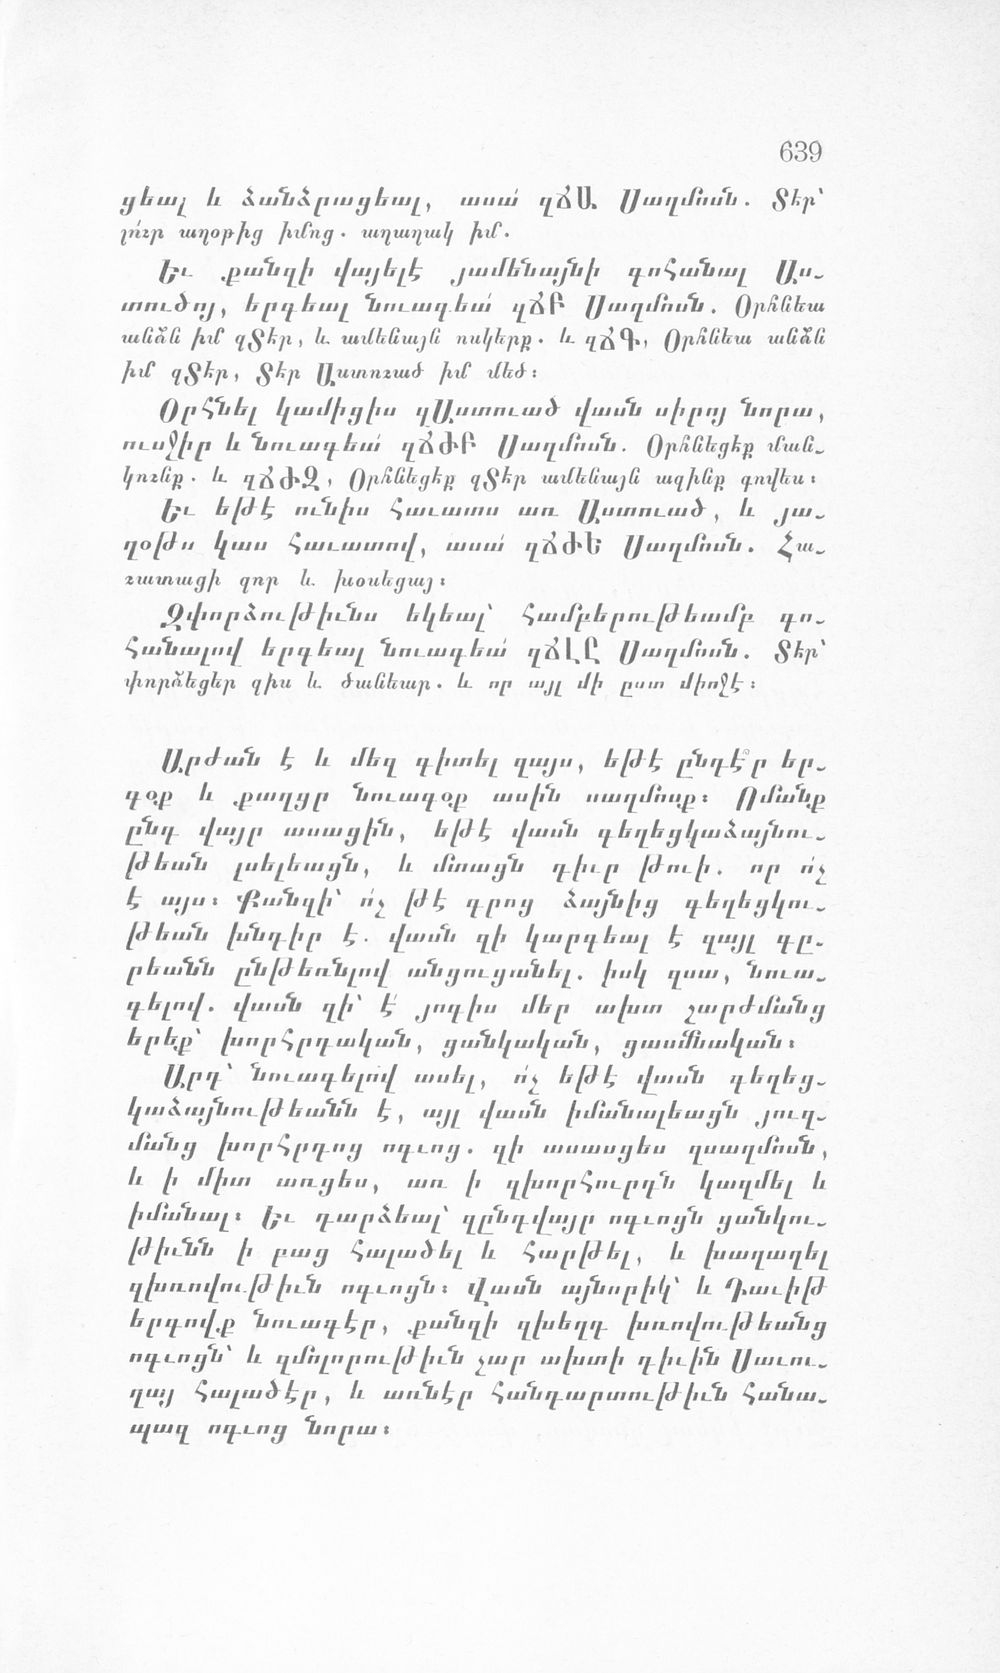 639
ցեալ և ձանձրացեալ, ասա՛ զՃԱ Սաղմոսն. Տէր՝
լո՛ւր աղօթից իմոց. աղաղակ իմ.
Եւ քանզի վայելէ յամենայնի գոհանալ Աս-
տուծոյ, երգեալ նուագեա՛ զՃԲ Սաղմոսն. Օրհնեա
անձն իմ զՏէր, և ամենայն ոսկերք. և զՃԳ, Օրհնեա անձն
իմ զՏէր, Տէր Աստուած իմ մեծ։
Օրհնել կամիցիս զԱստուած վասն սիրոյ նորա,
ուսջիր և նուագեա՛ զՃԺԲ Սաղմոսն. Օրհնեցէք ման-
կունք. և զՃԺԶ, Օրհնեցէք զՏէր ամենայն ազինք գովես։
Եւ եթէ ունիս հաւատս առ Աստուած, և յա-
ղօթս կաս հաւատով, ասա՛ զՃԺԵ Սաղմոսն. Հա-
ւատացի զոր և խօսեցայ։
Զփորձութիւնս եկեալ՝ համբերութեամբ գո-
հանալով երգեալ նուագեա՛ զՃԼԸ Սաղմոսն. Տէր՝
փորձեցեր զիս և ծանեար. և որ այլ մի ըստ միոջէ։
Արժան է և մեզ գիտել զայս, եթէ ընդէ՞ր եր-
գօք և քաղցր նուագօք ասին սաղմոսք։ Ոմանք
ընդ վայր ասացին, եթէ վասն գեղեցկաձայնու-
թեան լսելեացն, և մտացն դիւր թուի. որ ո՛չ
է այս։ Քանզի՝ ո՛չ թէ գրոց ձայնից գեղեցկու-
թեան խնդիր է. վասն զի կարգեալ է զայլ գը-
րեանն ընթեռնլով անցուցանել. իսկ զսա, նուա-
գելով. վասն զի՝ է՛ յոգիս մեր ախտ չարժմանց
երեք՝ խորհրդական, ցանկական, ցասմնական։
Արդ՝ նուագելով ասել, ո՛չ եթէ վասն գեղեց-
կաձայնութեանն է, այլ վասն իմանալեացն յուղ-
մանց խորհրդոց ոգւոց. զի ասասցես զսաղմոսն,
և ի միտ առցես, առ ի զխորհուրդն կազմել և
իմանալ։ Եւ դարձեալ՝ զընդվայր ոգւոցն ցանկու-
թիւնն ի բաց հալածել և հարթել, և խաղաղել
զխռովութիւն ոգւոցն։ Վասն այնորիկ՝ և Դաւիթ
երգովք նուագէր, քանզի զխեղդ խռովութեանց
ոգւոցն՝ և զմոլորութիւն չար ախտի դիւին Սաւու-
ղայ հալածէր, և առնէր հանդարտութիւն հանա-
պազ ոգւոց նորա։